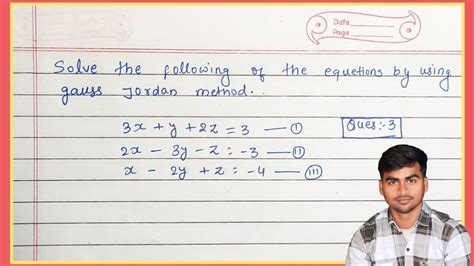 Data
Page
Solve the following of the equetions by using
gauss Jordan method..
3x + y + 2z = 3 — I
Ques:-3
2x - 3y - z = -3 — II
x - 2y + z = -4 — III